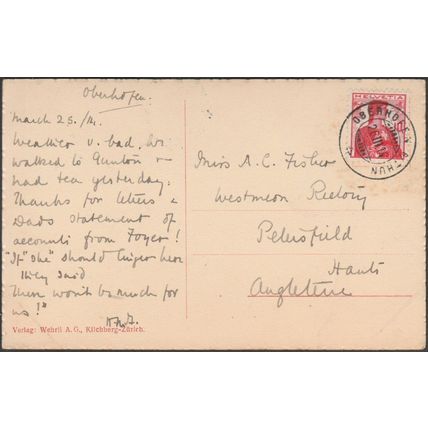 Oberhofen.
March 25. /14.
Weather v. bad, we
walked to Gunten &
had tea yesterday.
Thanks for letters &
Dads statement of
accounts from Foyer!
"If "she" should linger here
they said
there won't be much for
us!"
Verlag: Wehrli A. G., Kilchberg-Zürich.
Miss A. C. Fisher
Westmeon Rectory
Petersfield
Hants
Angleterre
HELVETIA
OBERHOFEN
THUN